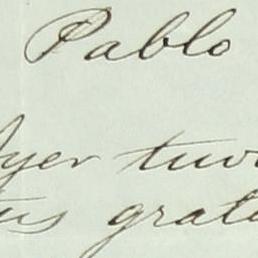 Pablo
Ayer tuv
tus grat